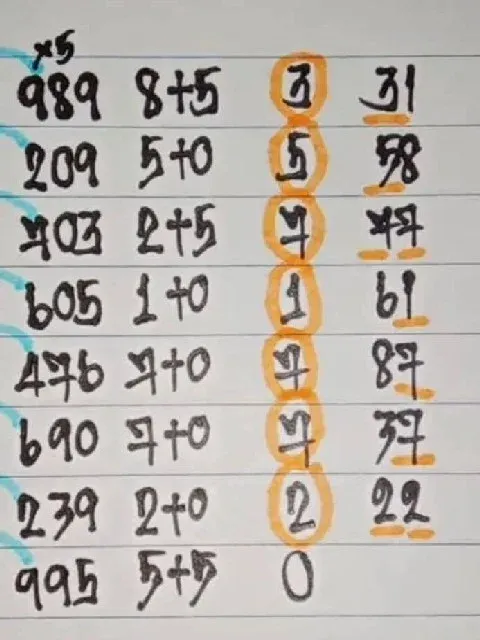 ×5
989 8+5 3 31
209 5+0 5 58
703 2+5 7 77
605 1+0 1 61
476 7+0 7 87
690 7+0 7 37
239 2+0 2 22
995 5+5 0